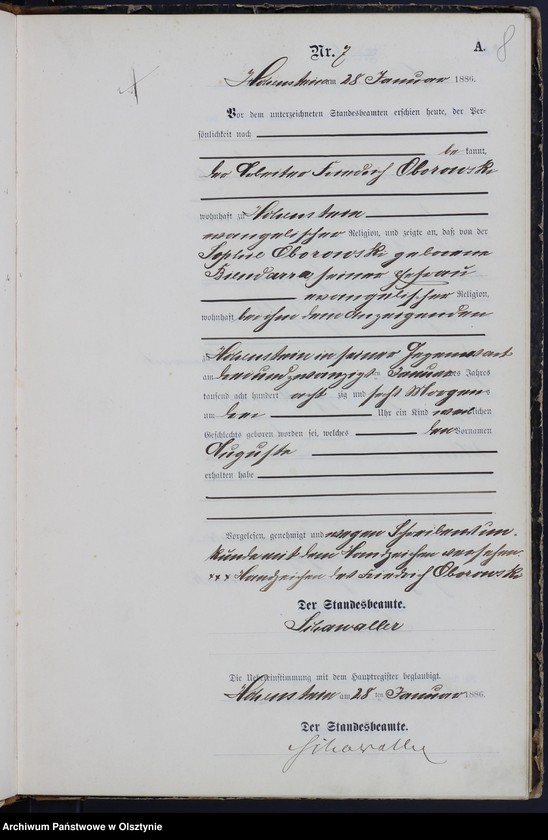 Nr. 7
A. 8
Hohenstein am 28 Januar 1886.
Vor dem unterzeichneten Standesbeamten erschien heute, der Per-
sönlichkeit nach
be kannt,
der Arbeiter Friedrich Oborowski
wohnhaft zu Hohenstein
evangelischer Religion, und zeigte an, daß von der
Sophie Oborowski geborene
seiner Ehefrau
evangelischer Religion,
wohnhaft bei ihm dem Anzeigenden
zu Hohenstein in seiner Gegenwart
am Januar des Jahres
tausend acht hundert acht zig und sechs Morgens
um Uhr ein Kind weiblichen
Geschlechts geboren worden sei, welches den Vornamen
Auguste
erhalten habe
Vorgelesen, genehmigt und wegen Schreibensun-
kunde mit dem Handzeichen versehen.
xxx Handzeichen des Friedrich Oborowski
Der Standesbeamte.
Die Uebereinstimmung mit dem Hauptregister beglaubigt.
Hohenstein am 28 ten Januar 1886.
Der Standesbeamte.
Archiwum Państwowe w Olsztynie